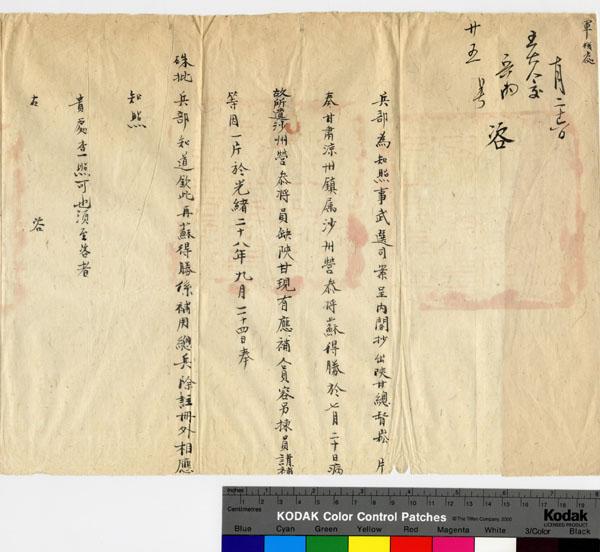 軍機處
十月二十六日
王大人交
兵內
廿五 号 咨
兵部為知照事武選司案呈內閣抄出陝甘總督崧 片
奏甘肅涼州鎮屬沙州營叅將蘇得勝於七月二十日病
故所遺沙州營叅將員缺陝甘現有應補人員容另揀員請補
等因一片於光緒二十八年九月二十四日奉
硃批兵部知道欽此再蘇得勝係補用總兵除註冊外相應
知照
貴處查照可也須至咨者
右 咨
Inches
Centimetres
KODAK Color Control Patches
© The Tiffen Company, 2000
Kodak
LICENSED PRODUCT
Blue Cyan Green Yellow Red Magenta White 3/Color Black